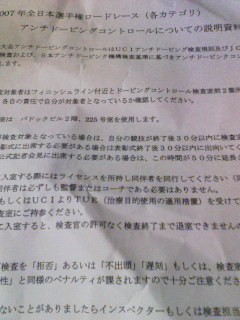 007年全日本選手権ロードレース（各カテゴリ
アンチドーピングコントロールについての説明資料
大会アンチドーピングコントロールはUCIアンチドーピング検査規則及びJC
日本アンチドーピング機構検査基準に基づきアンチドーピング
ロールはフィニッシュライン付近とドーピングコントロール検査室前２箇所
各自の責任で自分が対象となっているか
室は パドックビル２階、225号室を使用します。
検査対象となっている場合は、自分の競技が終了後３０分以内に検査室
彰式に出席する必要がある場合は表彰式終了後３０分以内に出向いてく
公式記者会見に出席する必要がある場合は、この時間が３０分に延長
に入室する際にはライセンスを所持し同伴者を同行してください（
同伴者は必ずしも監督またはコーチである必要はありません。
もしくはUCIよりTUE（治療目的使用の適用措置）を受けて
査室にご持参ください。
に入室すると、検査官の許可なく検査終了まで退室できません
検査を「拒否」あるいは「不出頭」「遅刻」もしくは、検査室
性」と同様のペナルティが課されますので十分ご注意くださ
ないことがありましたらインスペクターもしくは担当